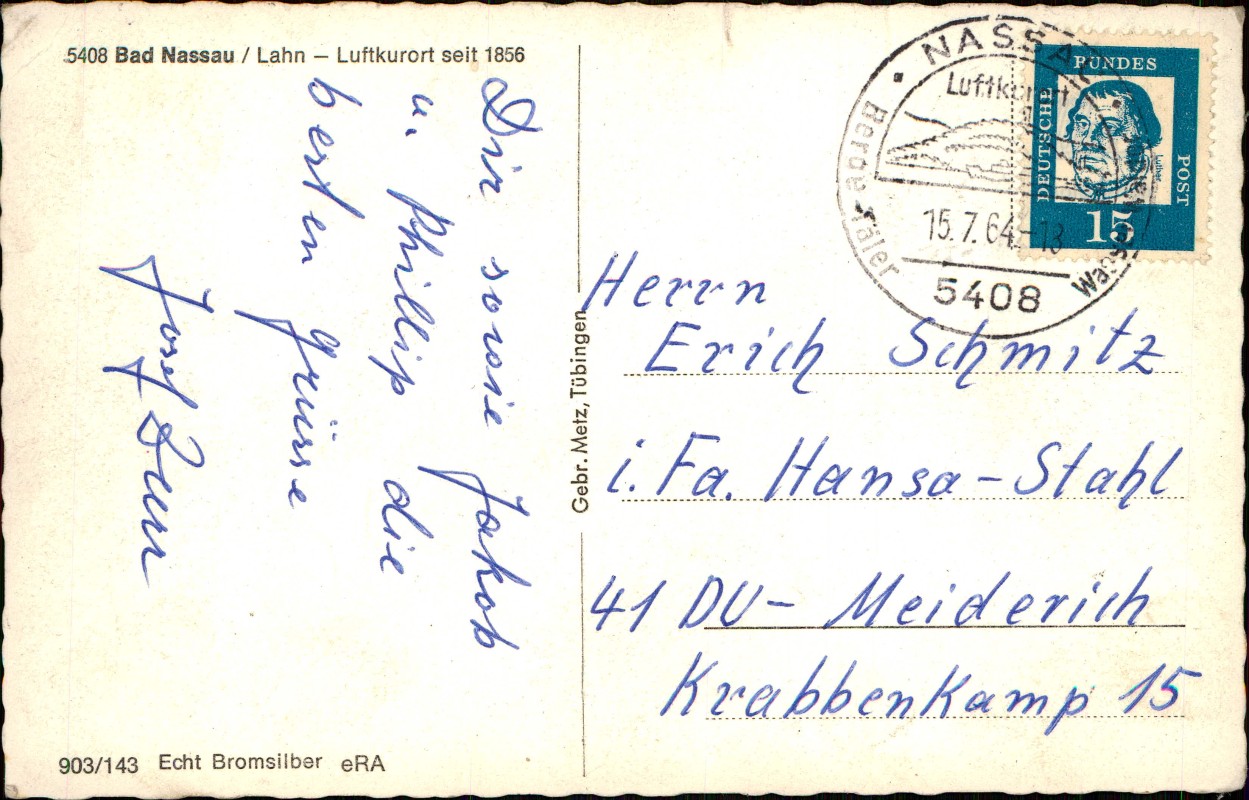 5408 Bad Nassau / Lahn – Luftkurort seit 1856
Dir sowie Jakob
u. Phillip die
besten Grüsse
Josef
Gebr. Metz, Tübingen
NASSAU
Luftkurort
Berge Täler
15.7.64-13
5408
DEUTSCHE
BUNDES
POST
Luther
15
Herrn
Erich Schmitz
i. Fa. Hansa-Stahl
41 DU-Meiderich
Krabbenkamp 15
903/143 Echt Bromsilber eRA